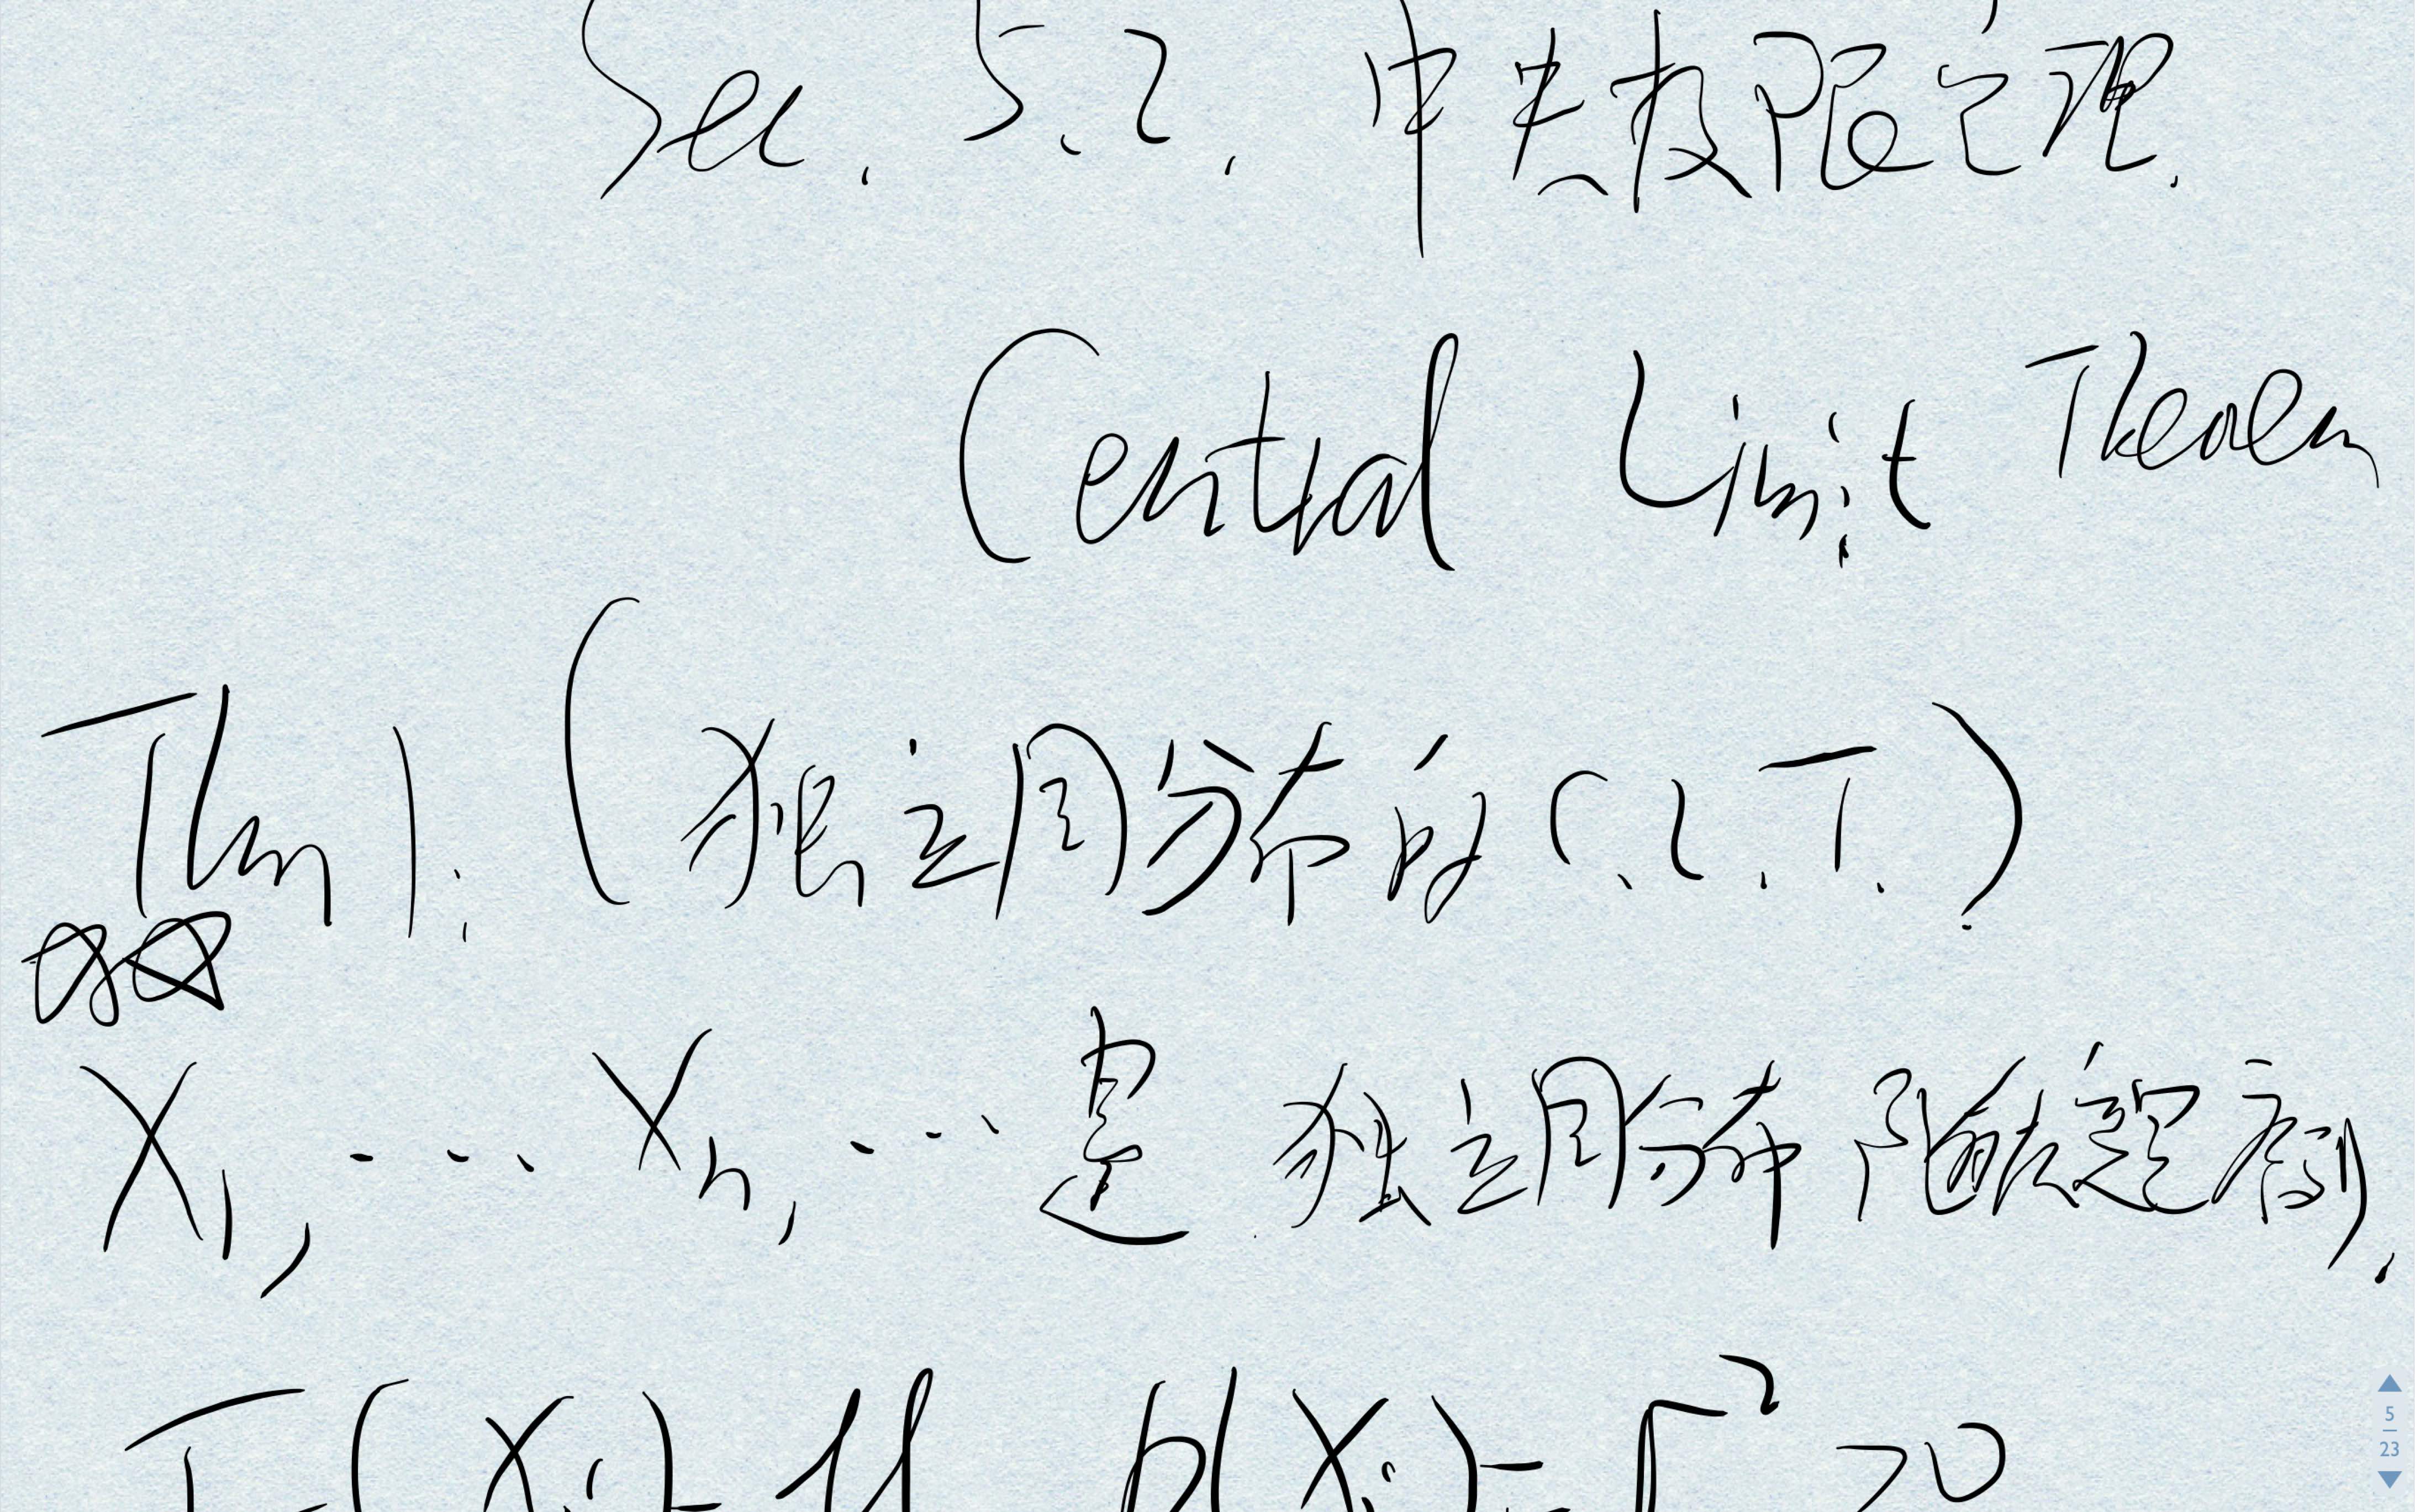 Sec. 5.2. 中央极限定理.
Central Limit Theorem
Thm 1: (独立同分布的 C.L.T.)
X₁, ... Xₙ, ... 是 独立同分布 随机变量序列,
E(Xᵢ)=μ D(Xᵢ)=σ² >0
5
23